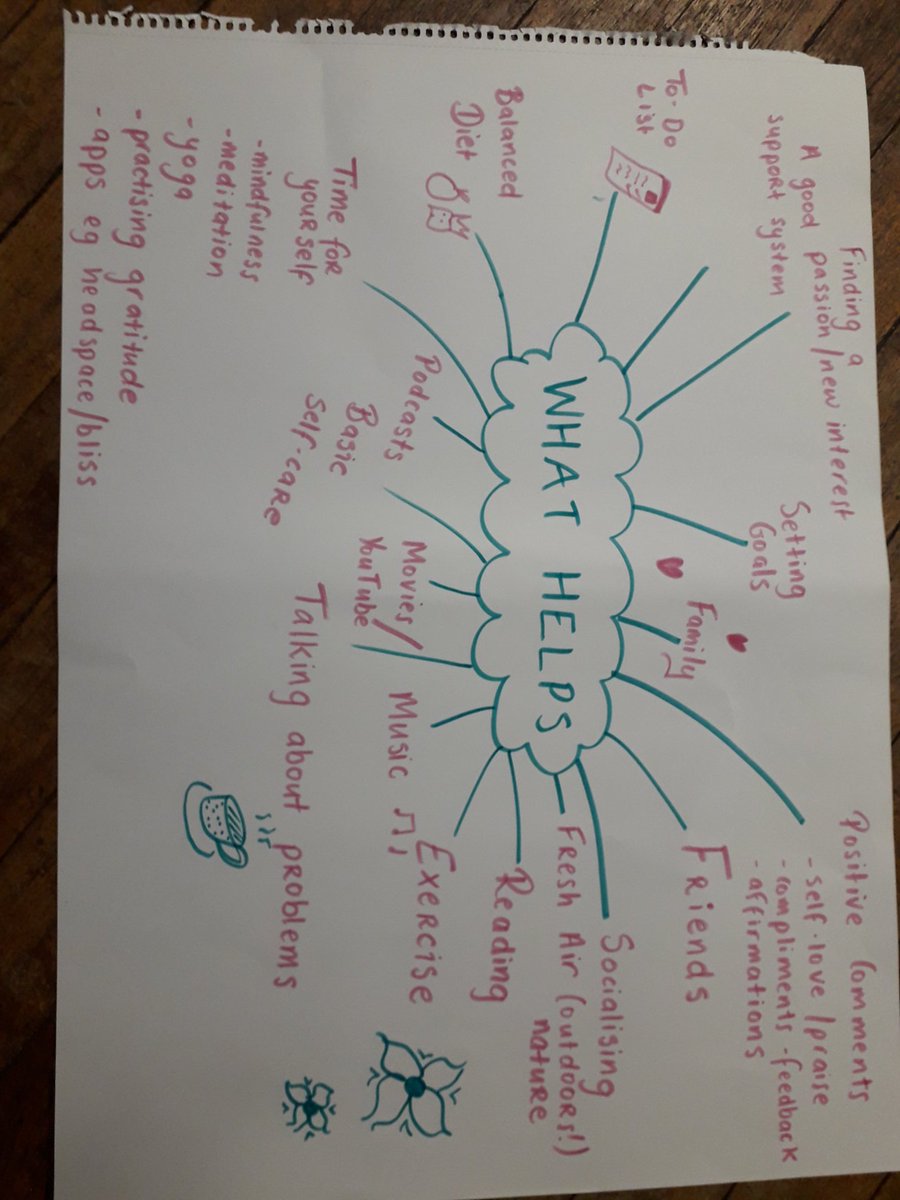 WHAT HELPS
A good
support system
Finding a
passion/new interest
Setting
Goals
Family
Positive Comments
- self-love/praise
- compliments - feedback
- affirmations
Friends
Socialising
Fresh Air (outdoors!)
nature
Reading
Exercise
Music
Talking about problems
Movies/
YouTube
Basic
self-care
Podcasts
Time for
yourself
- mindfulness
- meditation
- yoga
- practising gratitude
- apps eg headspace/bliss
Balanced
Diet
To-Do
List